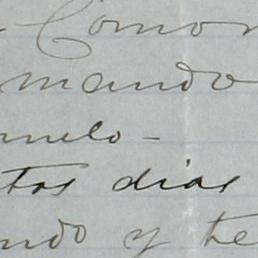 Comon
mando
melo-
tos dias
ndo y te